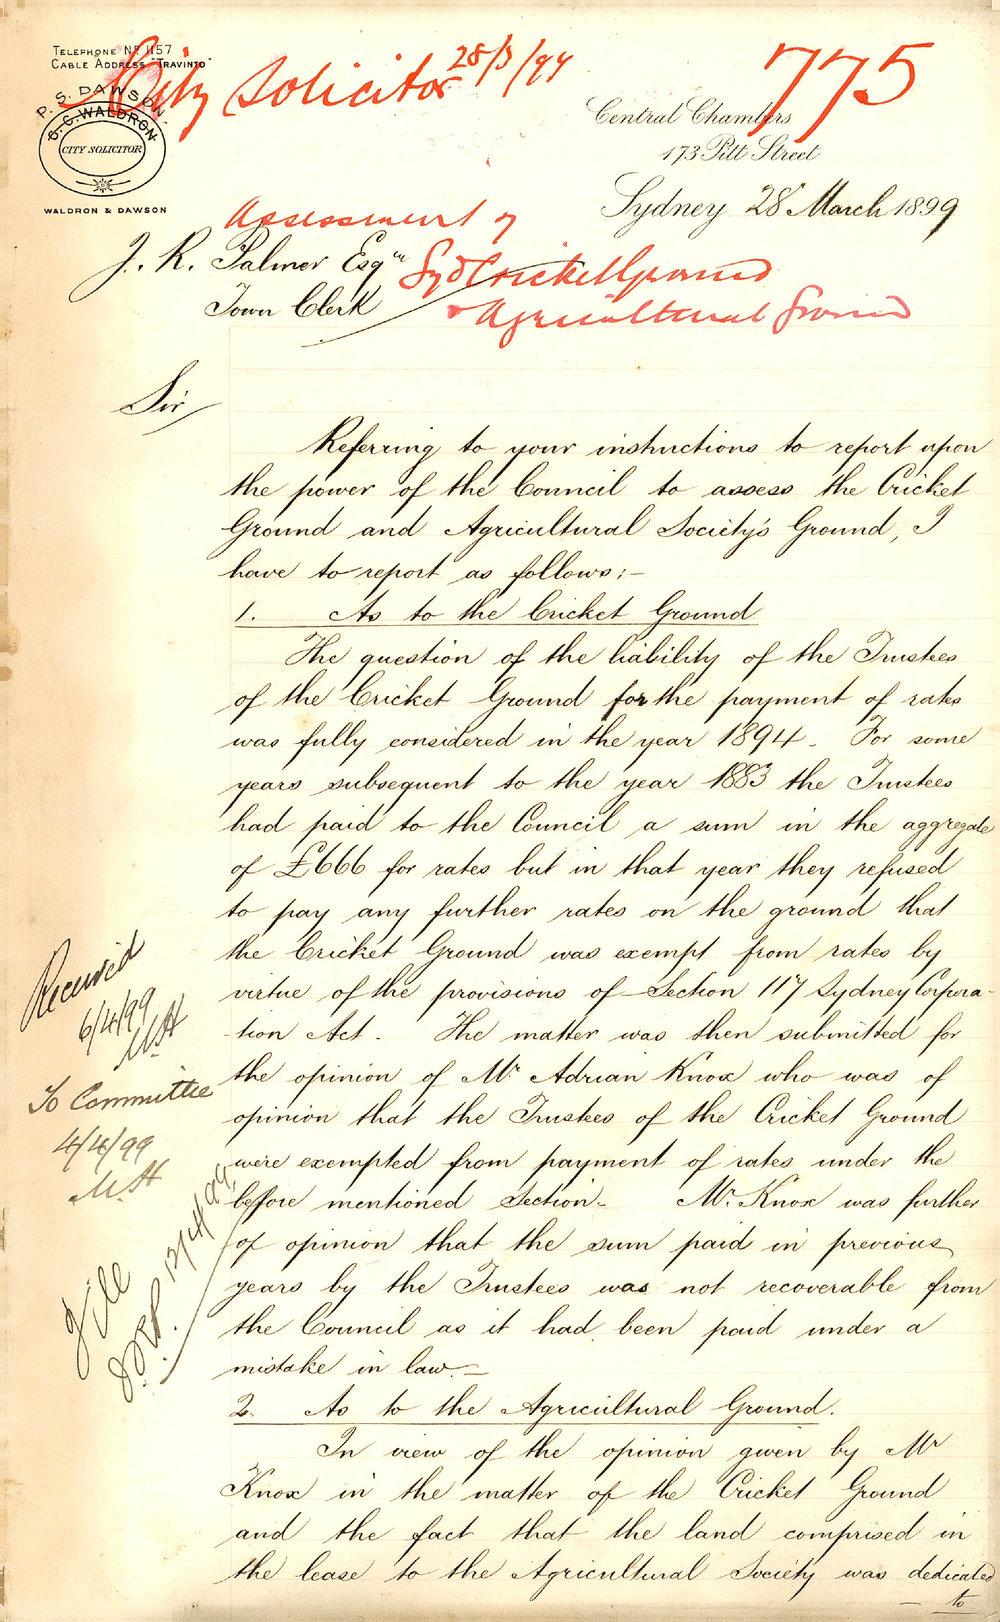 TELEPHONE No 1157
CABLE ADDRESS "TRAVINTO"
City Solicitor 28/3/99
775
P. S. DAWSON.
G. C. WALDRON
CITY SOLICITOR
WALDRON & DAWSON
Central Chambers
173 Pitt Street
Sydney 28 March 1899
Assessment of
Syd Cricket Ground
& Agricultural Ground
J. R. Palmer Esqre
Town Clerk
Sir
Referring to your instructions to report upon
the power of the Council to assess the Cricket
Ground and Agricultural Society's Ground, I
have to report as follows:-
1. As to the Cricket Ground
The question of the liability of the Trustees
of the Cricket Ground for the payment of rates
was fully considered in the year 1894. For some
years subsequent to the year 1883 the Trustees
had paid to the Council a sum in the aggregate
of £666 for rates but in that year they refused
to pay any further rates on the ground that
the Cricket Ground was exempt from rates by
virtue of the provisions of Section 117 Sydney Corpora-
tion Act. The matter was then submitted for
the opinion of Mr Adrian Knox who was of
opinion that the Trustees of the Cricket Ground
were exempted from payment of rates under the
before mentioned Section. Mr. Knox was further
of opinion that the sum paid in previous
years by the Trustees was not recoverable from
the Council as it had been paid under a
mistake in law.-
2. As to the Agricultural Ground.
In view of the opinion given by Mr
Knox in the matter of the Cricket Ground
and the fact that the land comprised in
the lease to the Agricultural Society was dedicated
to
Received
6/4/99
M.H
To Committee
4/4/99
M.H
File